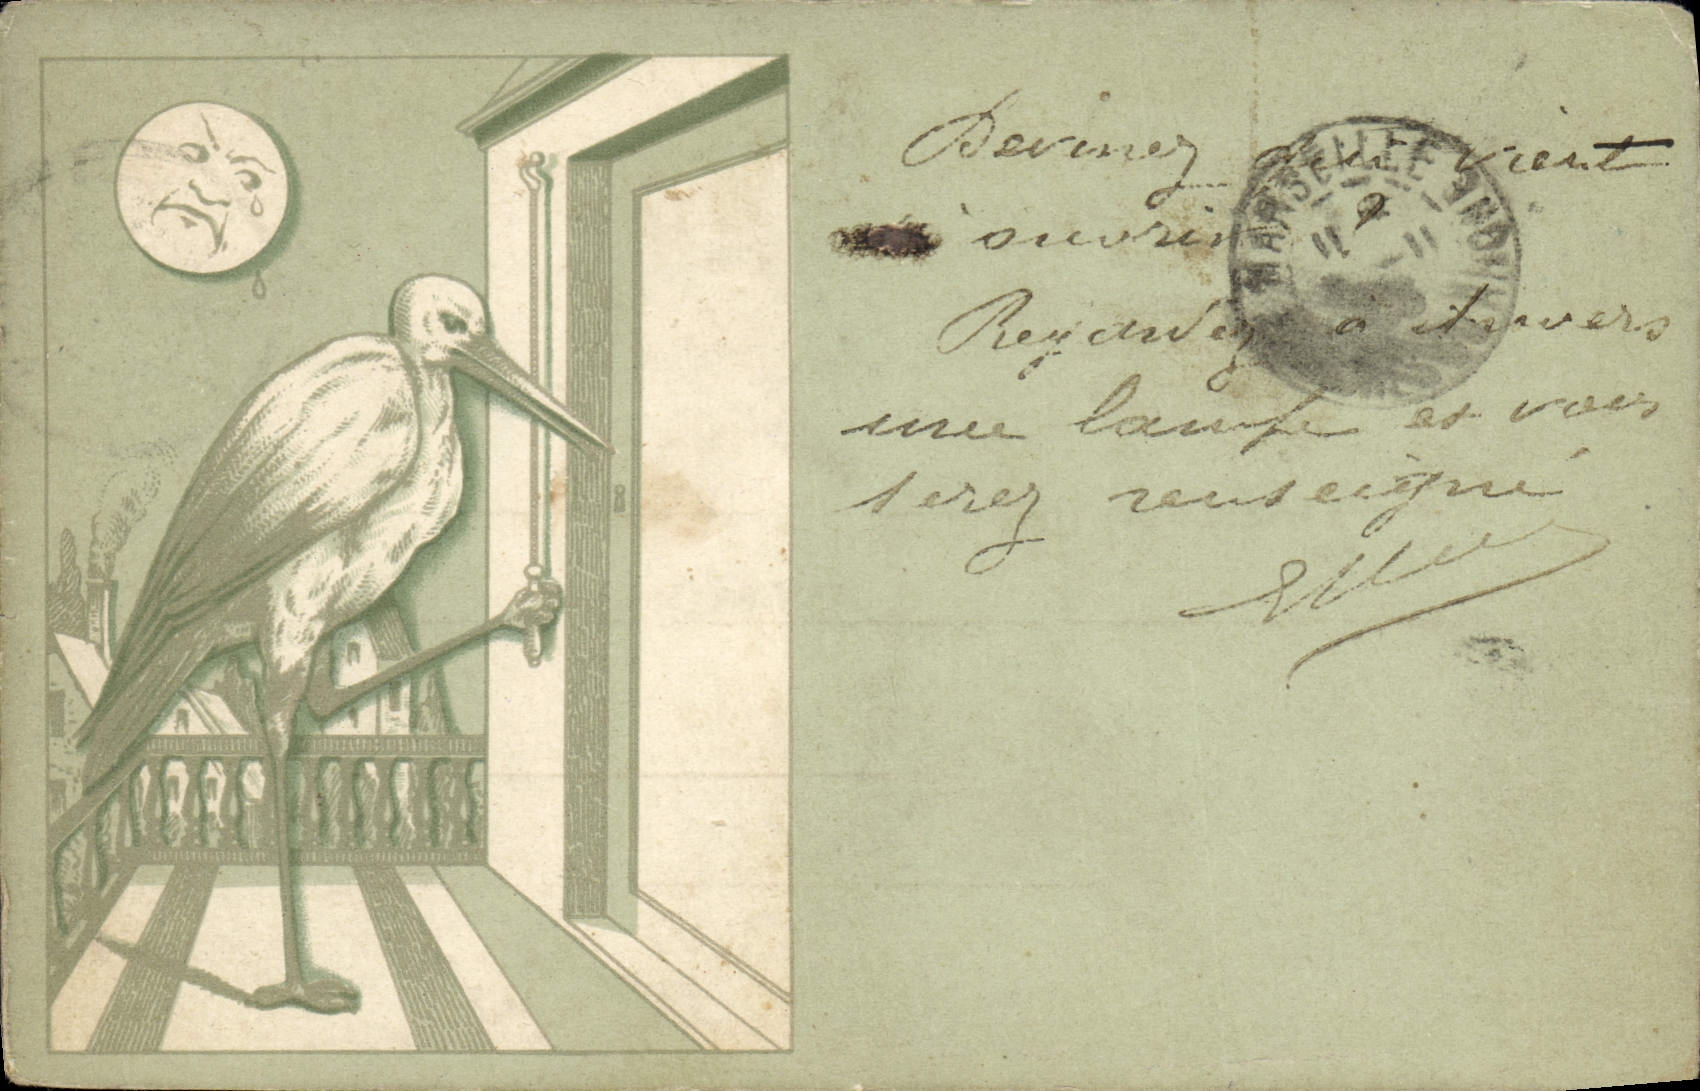 Devinez qui vient
m'ouvrir ?
Regardez à travers
une lampe et vous
serez renseigné
MARSEILLE